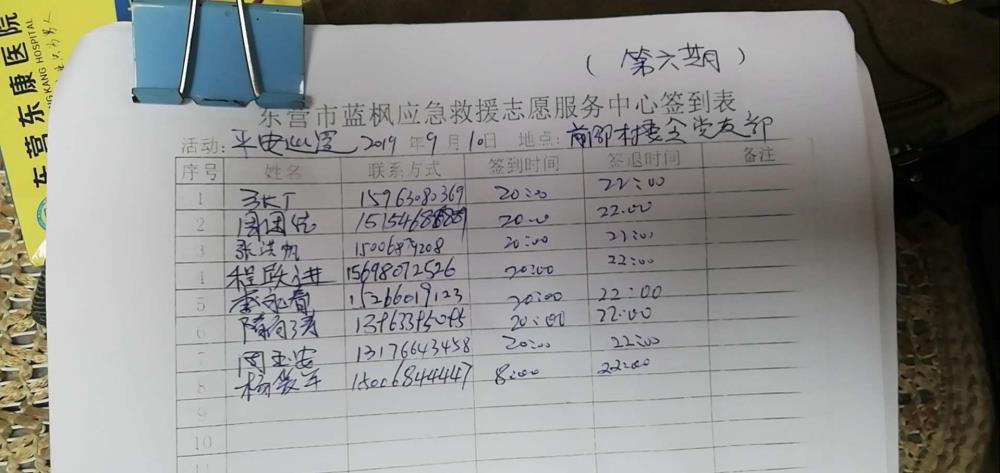 东营东康医院
KANG HOSPITAL
(第六期)
东营市蓝枫应急救援志愿服务中心签到表
活动: 平安 2019年9月10日 地点: 前邵村委会党支部
序号 姓名 联系方式 签到时间 签退时间 备注
1 15963080369 20:00 22:00
2 周国信 20:00 22:00
3 张洪帆 15006879208 20:00 21:00
4 程跃进 15698072526 20:00 22:00
5 李永春 15266019123 20:00 22:00
6 隋向涛 20:00 22:00
7 周玉安 13176643458 20:00 22:00
8 15006844447 8:00 22:00
9
10